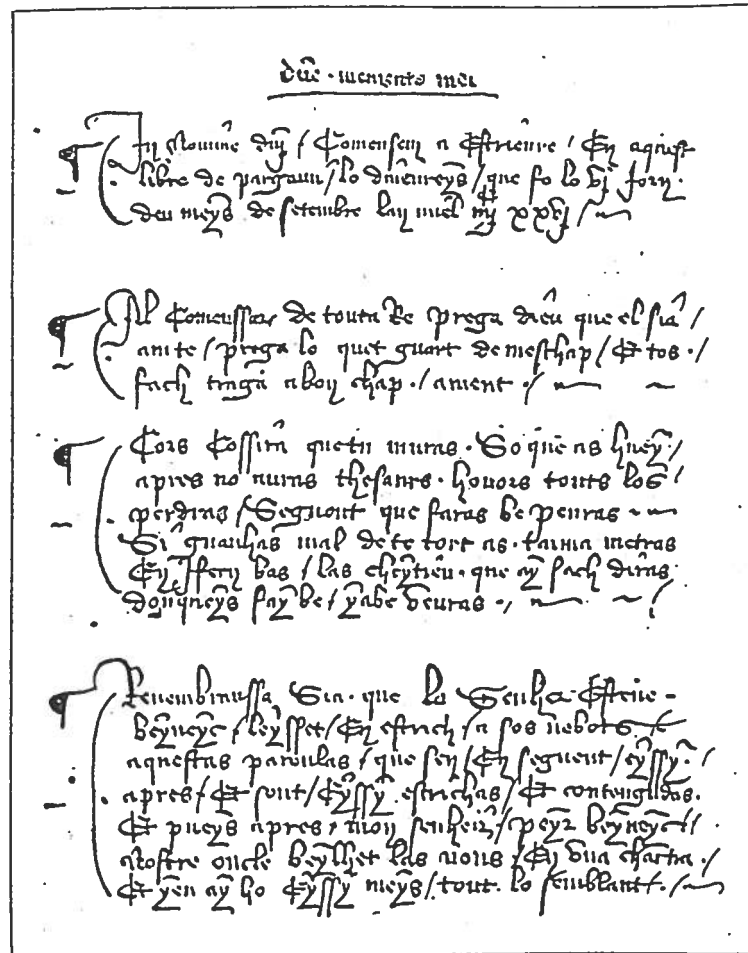 dne . memento mei
In Nomine dnj / Comensem a Estrieure / En aquest
libre de pargami / lo divenreys / que fo lo vj jorn .
deu meys de setembre lan miel iiijc xxvj /
Al Comenssar de touta Re prega dieu que el sia /
am te / prega lo quet guart de meschap / Et tos ./
fach traga a bon chap ./ ament ./
Cors Cossira quetu muras . So que as huey /
apres no auras thesaurs . honors touts los /
perdras / Seguont que faras be penras
Si guanhas mal de te tort as . tarma metras
En Iffern bas / las cheytieu . que ay fach diras
donqueys fay be / yabe veuras ./
Remembranssa Sia . que lo Senher Esteve -
beyneyc / leysset / En estrich / a sos nebots
aquestas paraulas / que sen / En seguent / eyssy . /
apres / Et sont / Eyssy . estrichas / Et contengudas .
Et pueys apres / mon senheir / peyr beyneyct /
nostre oncle beylhet las nous / En vna charta ./
Et yeu ay ho Eyssy meys / tout . lo semblant ./